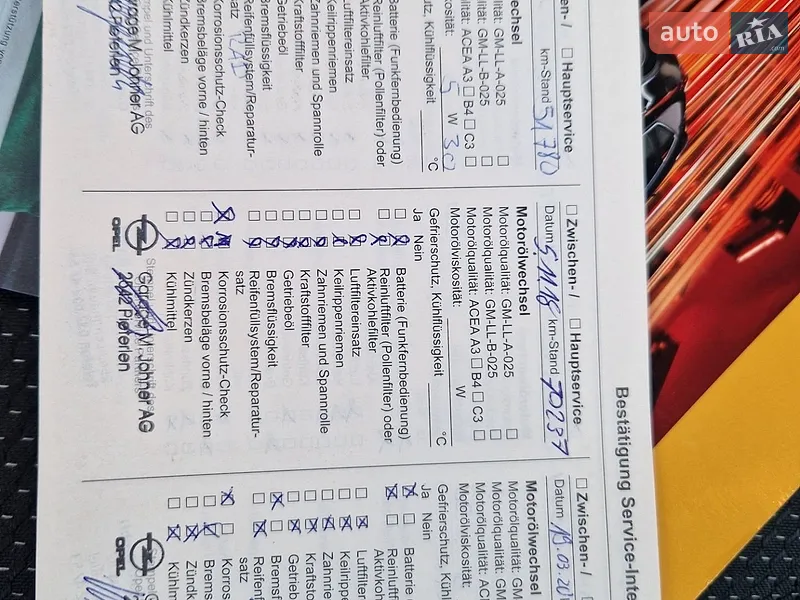 auto RIA
Bestätigung Service-Inte
Hauptservice
km-Stand 51780
GM-LL-A-025
GM-LL-B-025
ACEA A3 B4 C3
5 W 30
Kühlflüssigkeit °C
Batterie (Funkfernbedienung)
Reinluftfilter (Pollenfilter) oder
Aktivkohlefilter
Luftfiltereinsatz
Keilrippenriemen
Zahnriemen und Spannrolle
Kraftstofffilter
Getriebeöl
Bremsflüssigkeit
Reifenfüllsystem/Reparatur-
satz
Korrosionsschutz-Check
Bremsbeläge vorne / hinten
Zündkerzen
Kühlmittel
M. Johner AG
Zwischen- / Hauptservice
Datum 5.11.18 km-Stand 70237
Motorölwechsel
Motorölqualität: GM-LL-A-025
Motorölqualität: GM-LL-B-025
Motorölqualität: ACEA A3 B4 C3
Motorölviskosität: W
Gefrierschutz, Kühlflüssigkeit °C
Ja Nein
Batterie (Funkfernbedienung)
Reinluftfilter (Pollenfilter) oder
Aktivkohlefilter
Luftfiltereinsatz
Keilrippenriemen
Zahnriemen und Spannrolle
Kraftstofffilter
Getriebeöl
Bremsflüssigkeit
Reifenfüllsystem/Reparatur-
satz
Korrosionsschutz-Check
Bremsbeläge vorne / hinten
Zündkerzen
Kühlmittel
OPEL
Garage M. Johner AG
Pieterlen
Zwischen- /
Datum 19.03.20
Motorölwechsel
Motorölqualität: GM
Motorölqualität: GM
Motorölqualität: AC
Motorölviskosität:
Gefrierschutz, Kühl
Ja Nein
Batterie
Reinluft
Aktivko
Luftfilte
Keilripp
Zahnrie
Kraftsto
Getrieb
Bremsf
Reifenf
satz
Korros
Brems
Zündk
Kühlm
OPEL